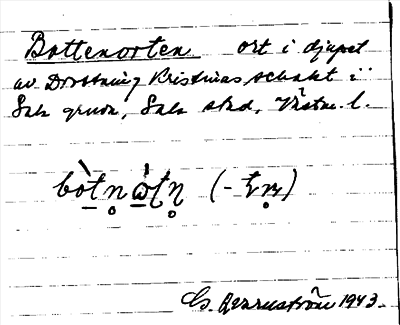 Bottenorten ort i djupet
av Drottning Kristinas schakt i
Sala gruva, Sala stad, Västm. l.
bòtn̥ òtn̥ (-tn̥)
1943.